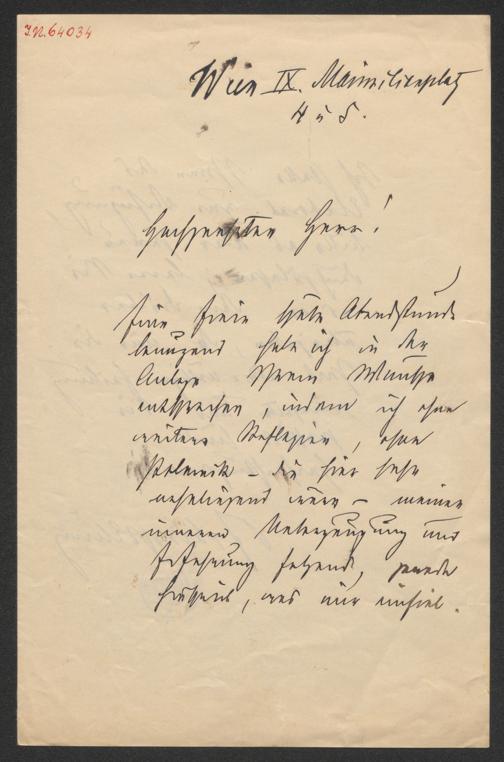 I.N. 64034
Wien IX. Maximilianplatz
4 u 5.
Hochgeehrter Herr!
Eine freie späte Abendstunde
benuzend habe ich in der
Anlage Ihrem Wunsche
entsprochen, indem ich ohne
weitere Reflexion, ohne
Polemik – die hier sehr
naheliegend wäre – meiner
inneren Ueberzeugung und
Erfahrung folgend,
hinschrieb, was mir einfiel.